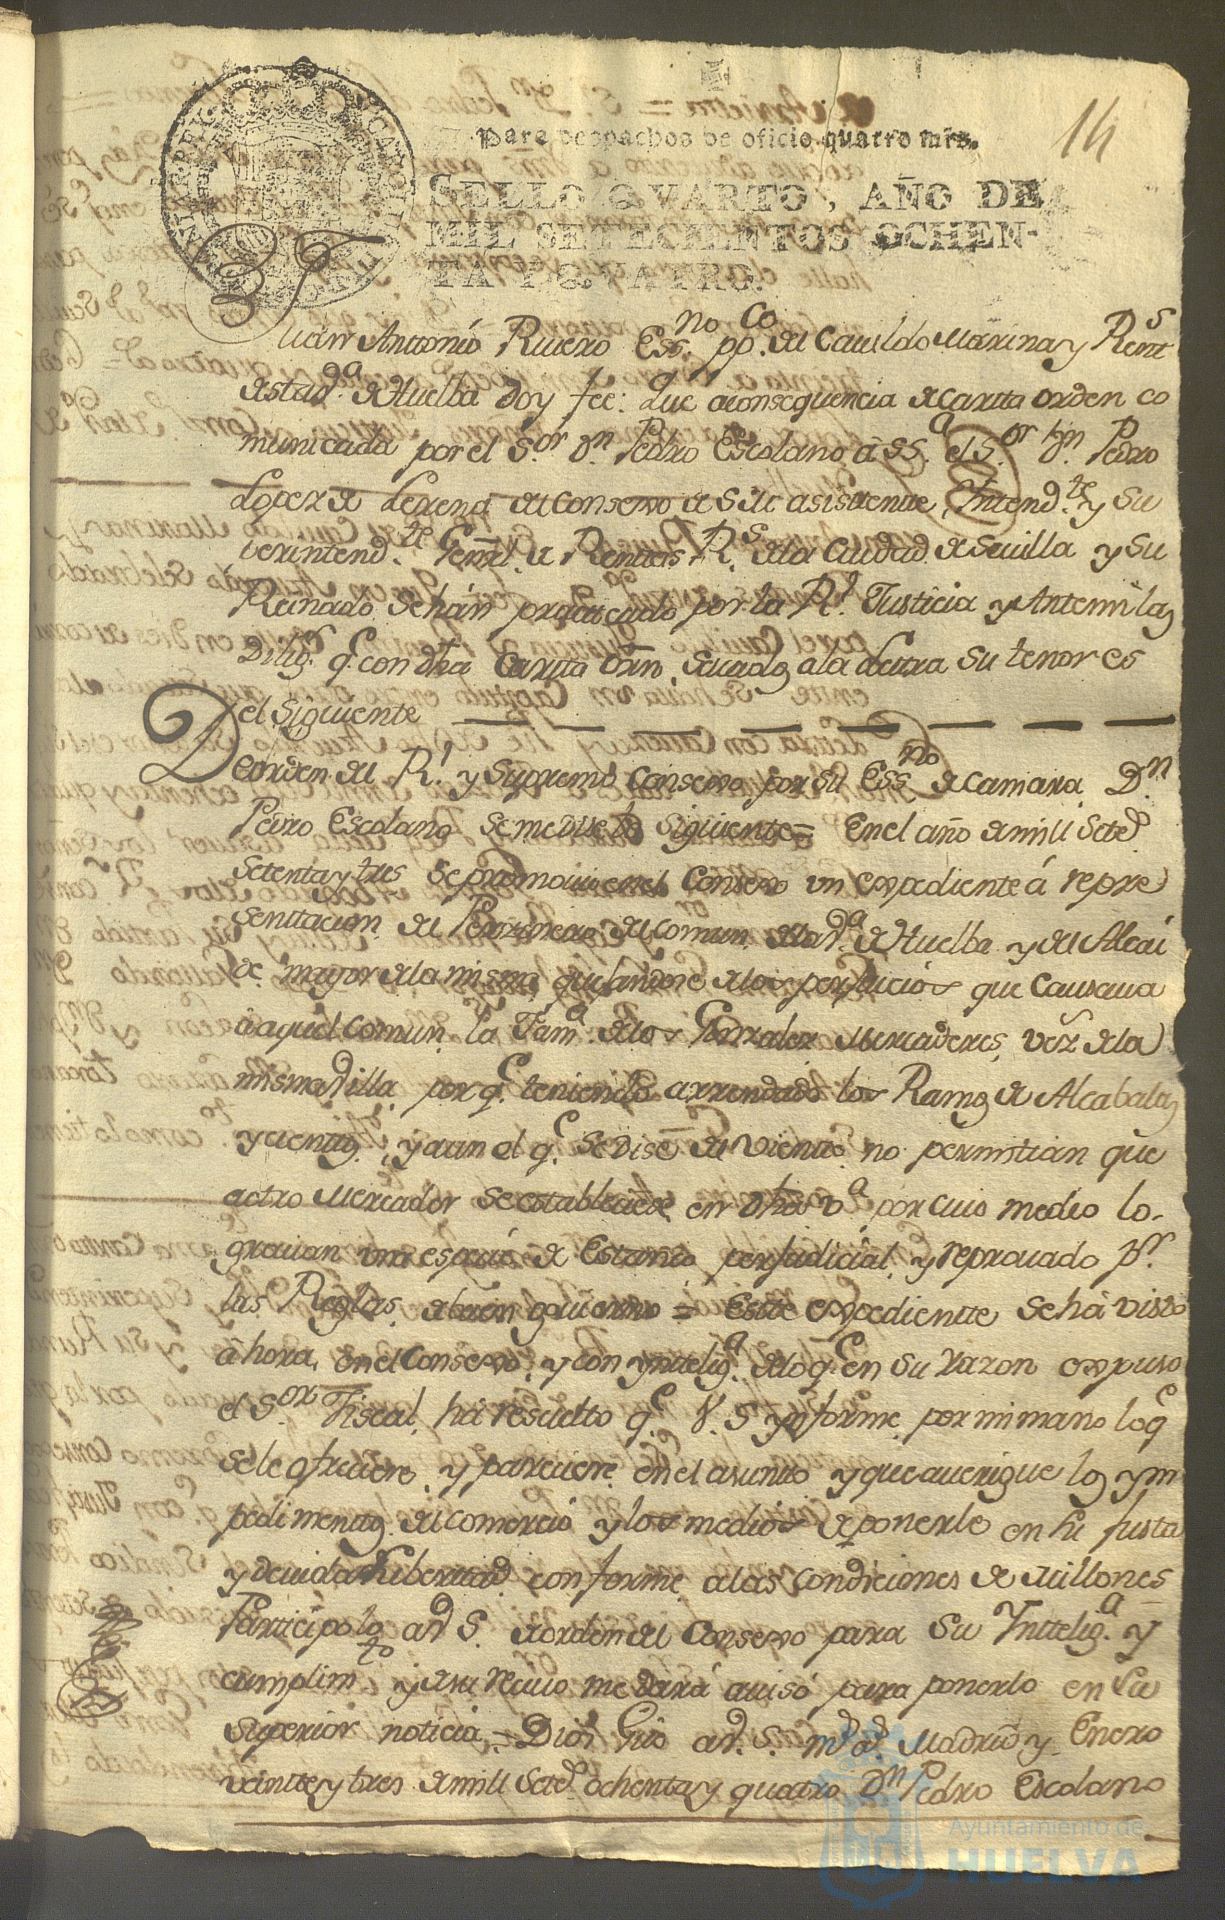 14
Para despachos de oficio quatro mrs.
SELLO QVARTO, AÑO DE
MIL SETECIENTOS OCHEN-
TA Y QVATRO.
Juan Anttonio Rivero Ess.no pp.co del Cavildo Marina y Rent.s
de esta v.a de Huelba Doy fee: Que a consequencia de Cartta orden co
municada por el S.or D.n Pedro Escolano à SS.a el S.or D.n Pedro
Lopez de Lerena del Consexo de S.M. asistente, Intend.te y Su
perintend.te Genrl. de Renttas R.s de la Ciudad de Sevilla y su
Reinado se hán practicado por la R.l Justicia y Antemi las
Dilig.s q.e con dha Cartta orn. sacadas a la letra su tenor es
el Siguiente
De orden del R.l y Supremo Consexo por su Ess.no de Camara D.n
Pedro Escolano se me dise lo Siguiente = En el año de mill Setez.s
Setenta y tres se promovio en el Consexo un expediente á repre
senttacion del Personero del comun de la v.a de Huelba y del Alcal
de mayor de la misma quejandose de los perjuicios que causava
á aquel comun la Fam.a de los Gonzalez Mercaderes, vez.s de la
misma Villa por q.e teniendo arrendado los Ramos de Alcabalas
y cientos, y aun el q.e se dise del Viento no permitian que
a otro Mercader se estableciese en dha v.a por cuio medio lo-
gravan una especie de Estanco perjudicial y reprovado p.r
las Reglas de buen govierno = Este expediente se há visto
áhora en el Consexo, y con yntelig.a de lo q.e en su razon expuso
el S.or Fiscal, há resuelto q.e V.S. ynforme por mi mano lo q.e
se le ofreciere, y pareciere en el asunto y que averigue los ym
pedimentos del comercio y los medios de ponerle en su justa
y devida Libertad conforme a las condiciones de Millones
Participolo a V.S. de orden del Consexo para su Yntelig.a y
cumplim.to y de su recivo me dará aviso para ponerlo en su
superior noticia = Dios gue a V.S. m.s a.s Madrid y Enero
veintte y tres de mill Setez.s ochenta y quatro D.n Pedro Escolano
Ayuntamiento de
HUELVA